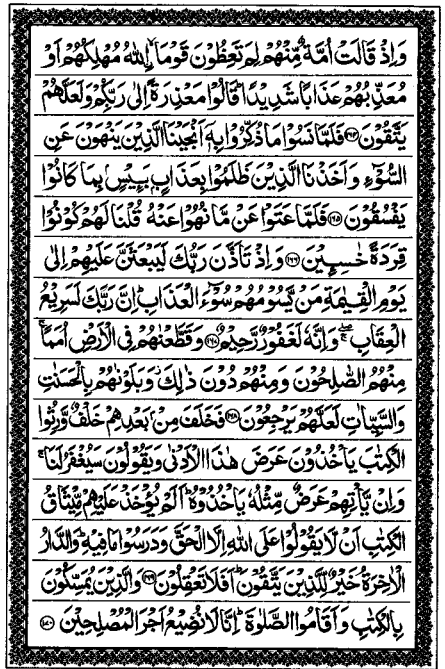 وَاِذْ قَالَتْ اُمَّةٌ مِّنْهُمْ لِمَ تَعِظُوْنَ قَوْمَا ۙ ۨاللّٰهُ مُهْلِكُهُمْ اَوْ
مُعَذِّبُهُمْ عَذَابًا شَدِيْدًا ؕ قَالُوْا مَعْذِرَةً اِلٰى رَبِّكُمْ وَلَعَلَّهُمْ
يَتَّقُوْنَ ﴿۱۶۴﴾ فَلَمَّا نَسُوْا مَا ذُكِّرُوْا بِهٖۤ اَنْجَيْنَا الَّذِيْنَ يَنْهَوْنَ عَنِ
السُّوْٓءِ وَاَخَذْنَا الَّذِيْنَ ظَلَمُوْا بِعَذَابٍۭ بَـِٕيْسٍۭ بِمَا كَانُوْا
يَفْسُقُوْنَ ﴿۱۶۵﴾ فَلَمَّا عَتَوْا عَنْ مَّا نُهُوْا عَنْهُ قُلْنَا لَهُمْ كُوْنُوْا
قِرَدَةً خٰسِـِٕيْنَ ﴿۱۶۶﴾ وَاِذْ تَاَذَّنَ رَبُّكَ لَيَبْعَثَنَّ عَلَيْهِمْ اِلٰى
يَوْمِ الْقِيٰمَةِ مَنْ يَّسُوْمُهُمْ سُوْٓءَ الْعَذَابِ ؕ اِنَّ رَبَّكَ لَسَرِيْعُ
الْعِقَابِ ۖۚ وَاِنَّهٗ لَغَفُوْرٌ رَّحِيْمٌ ﴿۱۶۷﴾ وَقَطَّعْنٰهُمْ فِى الْاَرْضِ اُمَمًا ۚ
مِنْهُمُ الصّٰلِحُوْنَ وَمِنْهُمْ دُوْنَ ذٰلِكَ ؗ وَبَلَوْنٰهُمْ بِالْحَسَنٰتِ
وَالسَّيِّاٰتِ لَعَلَّهُمْ يَرْجِعُوْنَ ﴿۱۶۸﴾ فَخَلَفَ مِنْۢ بَعْدِهِمْ خَلْفٌ وَّرِثُوا
الْكِتٰبَ يَاْخُذُوْنَ عَرَضَ هٰذَا الْاَدْنٰى وَيَقُوْلُوْنَ سَيُغْفَرُ لَنَا ۚ
وَاِنْ يَّاْتِهِمْ عَرَضٌ مِّثْلُهٗ يَاْخُذُوْهُ ؕ اَلَمْ يُؤْخَذْ عَلَيْهِمْ مِّيْثَاقُ
الْكِتٰبِ اَنْ لَّا يَقُوْلُوْا عَلَى اللّٰهِ اِلَّا الْحَقَّ وَدَرَسُوْا مَا فِيْهِ ؕ وَالدَّارُ
الْاٰخِرَةُ خَيْرٌ لِّلَّذِيْنَ يَتَّقُوْنَ ؕ اَفَلَا تَعْقِلُوْنَ ﴿۱۶۹﴾ وَالَّذِيْنَ يُمَسِّكُوْنَ
بِالْكِتٰبِ وَاَقَامُوا الصَّلٰوةَ ؕ اِنَّا لَا نُضِيْعُ اَجْرَ الْمُصْلِحِيْنَ ﴿۱۷۰﴾